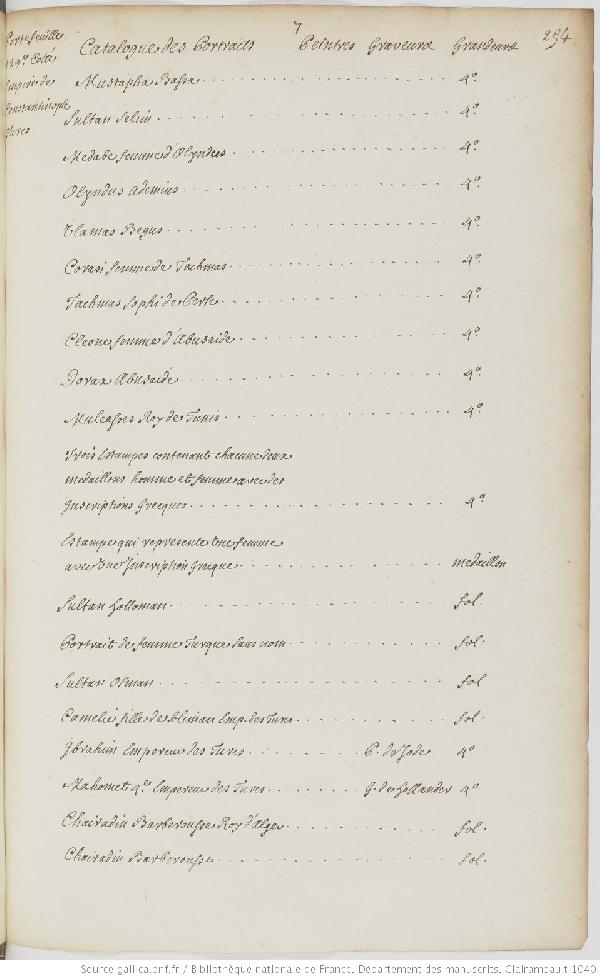 7
254
Portefeuille
129e Cotté
Empire de
Constantinople
Turcs
Catalogue des Portraits Peintres Graveurs Grandeurs
Mustapha Bassa 4°
Sultan Selim 4°
Medabe femme d'Olyndus 4°
Olyndus Ademius 4°
Tlamas Begus 4°
Corasi femme de Tachmas 4°
Tachmas Sophi de Perse 4°
Cleone femme d'Abusaide 4°
Dorax Abusaide 4°
Muleasses Roy de Tunis 4°
Trois Estampes contenant chacune deux
medaillons homme et femme avec des
Inscriptions Grecques 4°
Estampe qui represente Une femme
avec Une Inscription Grecque medaillon
Sultan Solloman fol.
Portrait de femme Turque Sans nom fol.
Sultan Osman fol
Camelie fille de Soliman Emp. des Turcs fol.
Ibrahim Empereur des Turcs P. de Jode 4°
Mahomet 4e. Empereur des Turcs G. de Hollander 4°
Chairadin Barberousse Roy d'Alger fol.
Chairadin Barberousse fol.
Source gallica.bnf.fr / Bibliothèque nationale de France. Département des manuscrits. Clairambault 1040